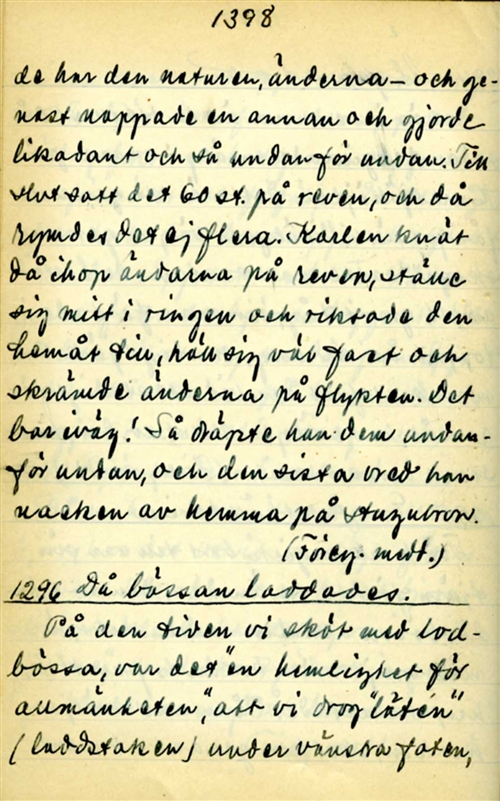 1398
de har den naturen, änderna — och ge-
nast nappade en annan och gjorde
likadant och så undan för undan. Till
slut satt det 60 st. på reven, och då
rymdes det ej flera. Karlen knöt
då ihop ändarna på reven, ställde
sig mitt i ringen och riktade den
hemåt till, höll sig väl fast och
skrämde änderna på flykten. Det
bar iväg! Så dräpte han dem undan-
för undan, och den sista vred han
nacken av hemma på stugubron.
(Föreg. medd.)
1296 Då bössan laddades.
På den tiden vi sköt med lod-
bössa, var det "en hemlighet för
allmänheten", att vi drog "låtén"
(laddstaken) under vänstra foten,